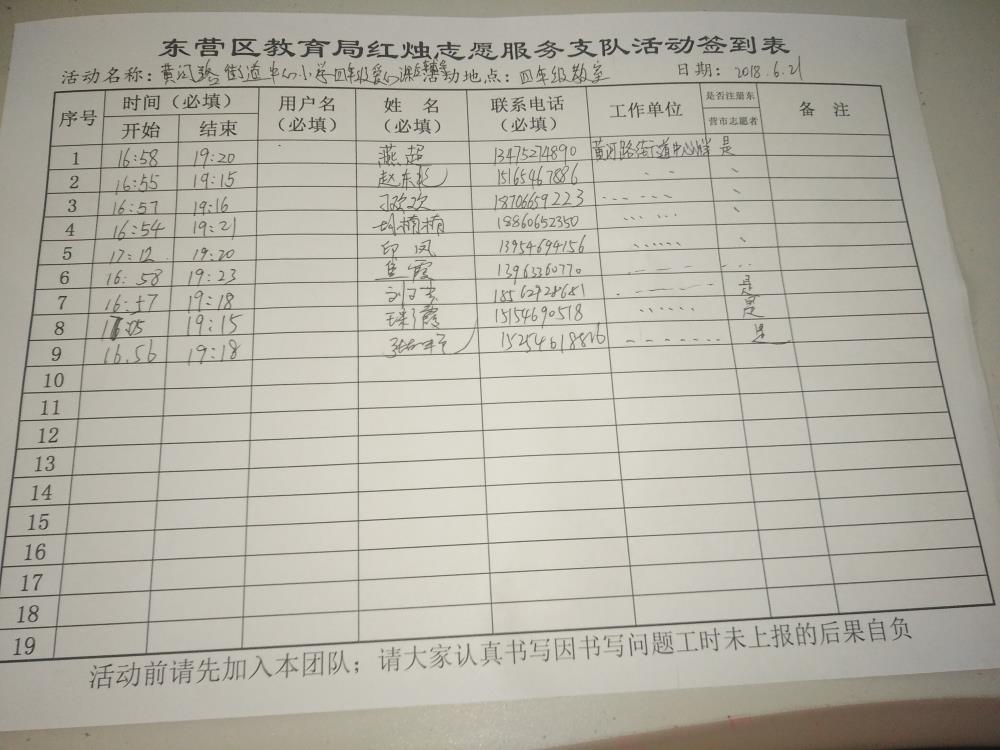 东营区教育局红烛志愿服务支队活动签到表
活动名称：黄河路街道中心小学四年级爱心 活动地点：四年级教室 日期：2018.6.21
序号 时间（必填） 用户名（必填） 姓 名（必填） 联系电话（必填） 工作单位 是否注册东营市志愿者 备 注
开始 结束
1 16:58 19:20 燕超 13475274890 黄河路街道中心小学 是
2 16:55 19:15 赵东 15165467886
3 16:57 19:16 欢欢 18706659223
4 16:54 19:21 楠楠 18860652350
5 17:12 19:20 印凤 13954694156
6 16:58 19:23 霞 13963360770
7 16:57 19:18 刘 18562928681 是
8 19:15 霞 15154690518 是
9 16.56 19:18 张 是
10
11
12
13
14
15
16
17
18
19
活动前请先加入本团队；请大家认真书写因书写问题工时未上报的后果自负